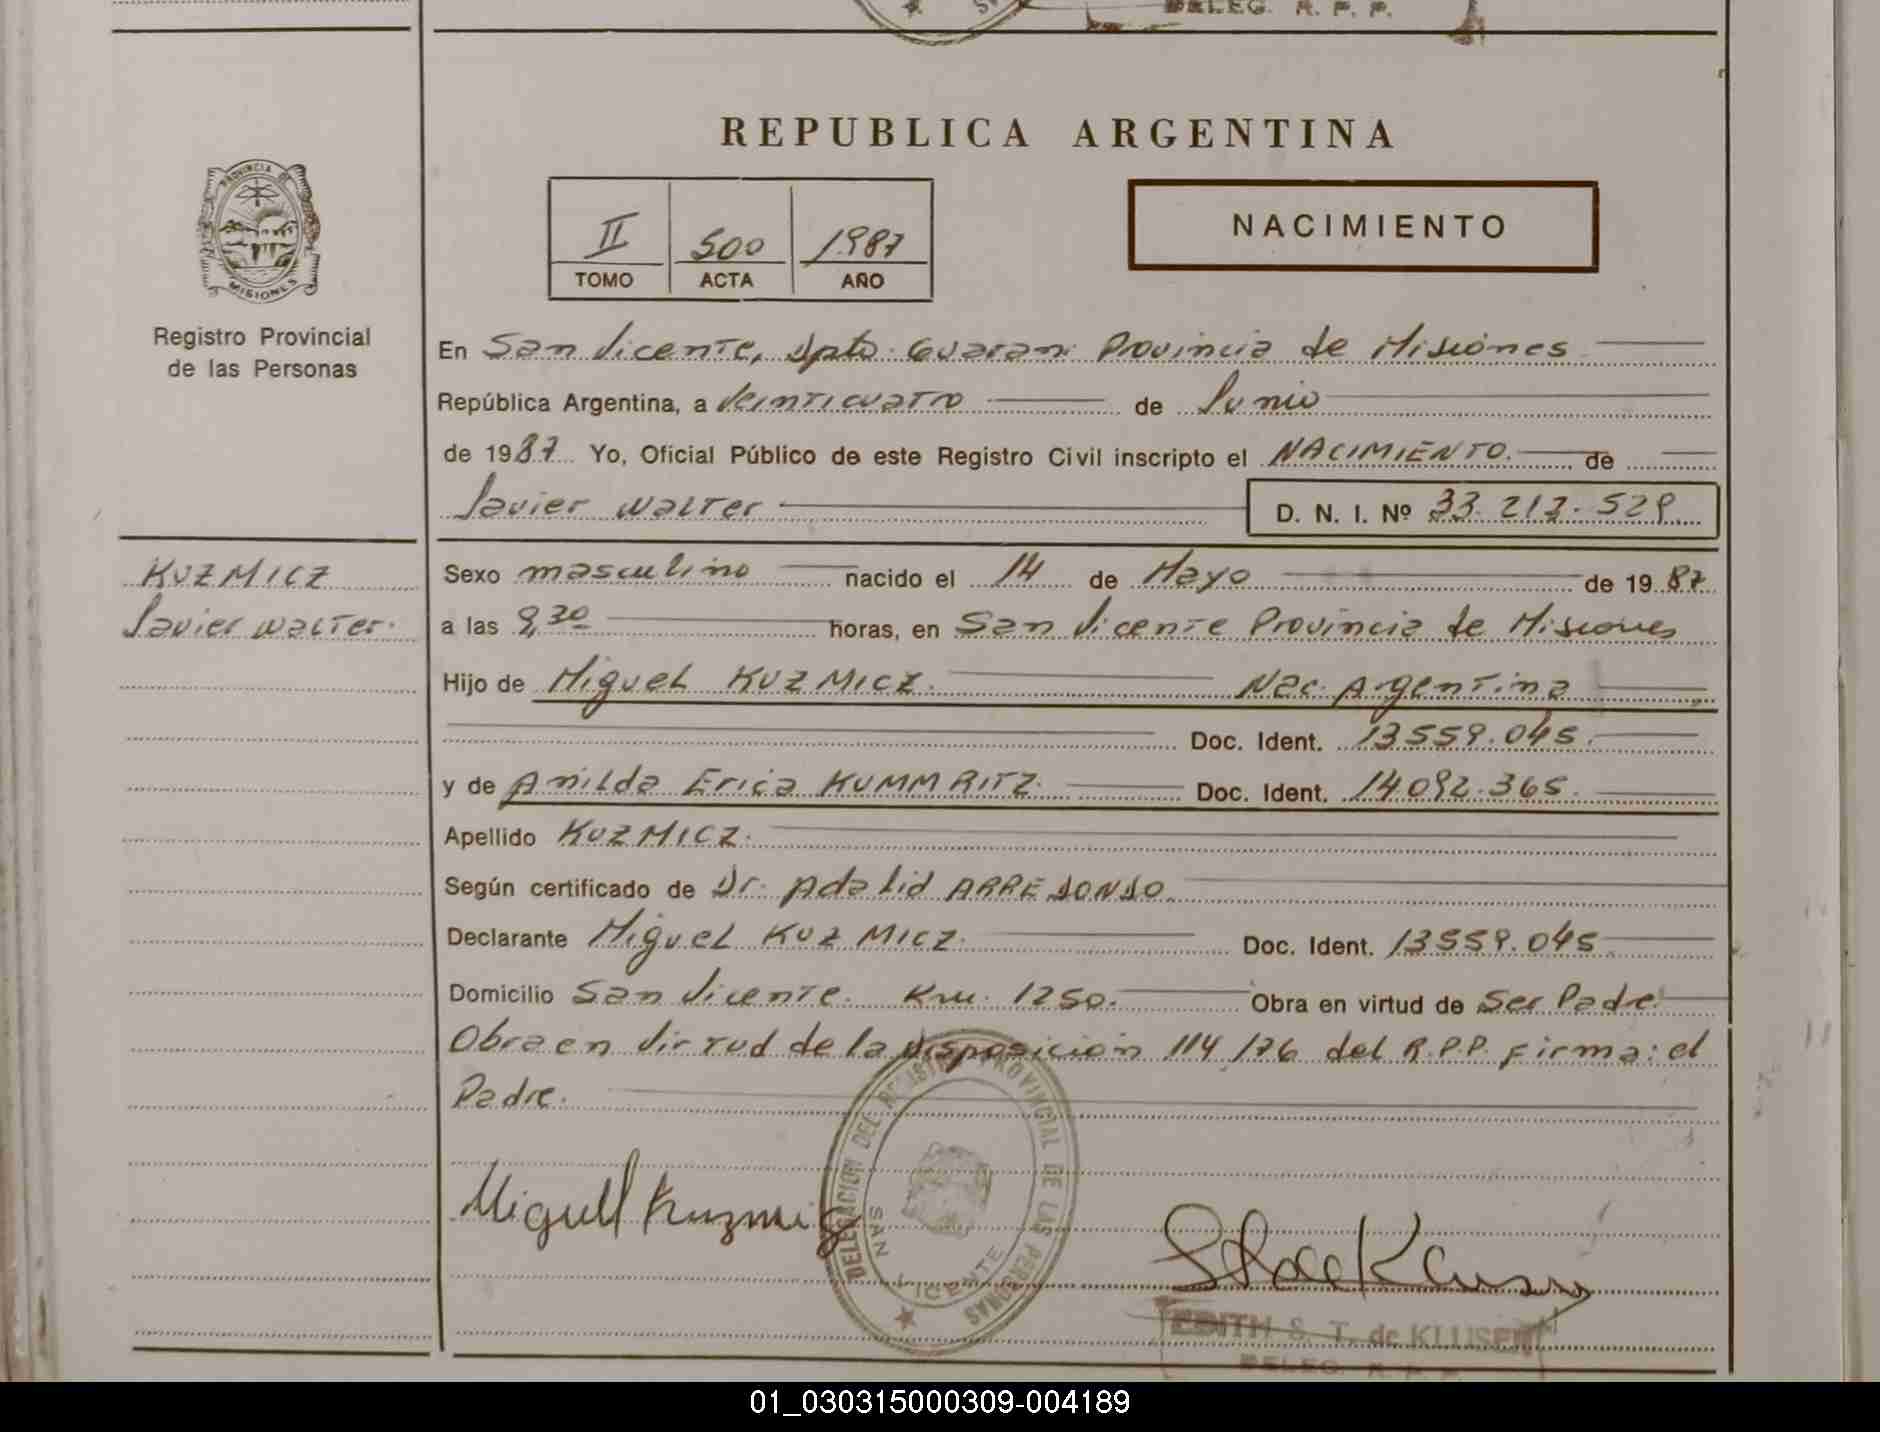 DELEG. R. P. P.
REPUBLICA ARGENTINA
PROVINCIA DE
MISIONES
II 500 1987
TOMO ACTA AÑO
NACIMIENTO
Registro Provincial
de las Personas
En San Vicente, Dpto. Guaraní Provincia de Misiones
República Argentina, a Veinticuatro de Junio
de 1987 Yo, Oficial Público de este Registro Civil inscripto el NACIMIENTO. de
Javier Walter D. N. I. Nº 33.213.529
KUZMICZ
Javier Walter.
Sexo masculino nacido el 14 de Mayo de 1987
a las 9,30 horas, en San Vicente Provincia de Misiones
Hijo de Miguel KUZMICZ. Nac. Argentina
Doc. Ident. 13559.045.
y de Anilda Erica KUMMRITZ. Doc. Ident. 14092.365.
Apellido KUZMICZ.
Según certificado de Dr. Adalid ARREDONDO.
Declarante Miguel KUZMICZ. Doc. Ident. 13559.045
Domicilio San Vicente. Km. 1250. Obra en virtud de Ser Padre.
Obra en virtud de la Disposición 114/76 del R.P.P. Firma: el
Padre.
DELEGACION DEL REGISTRO PROVINCIAL DE LAS PERSONAS
SAN VICENTE
EDITH S. T. de KLUSENER
DELEG. R. P. P.
01_030315000309-004189